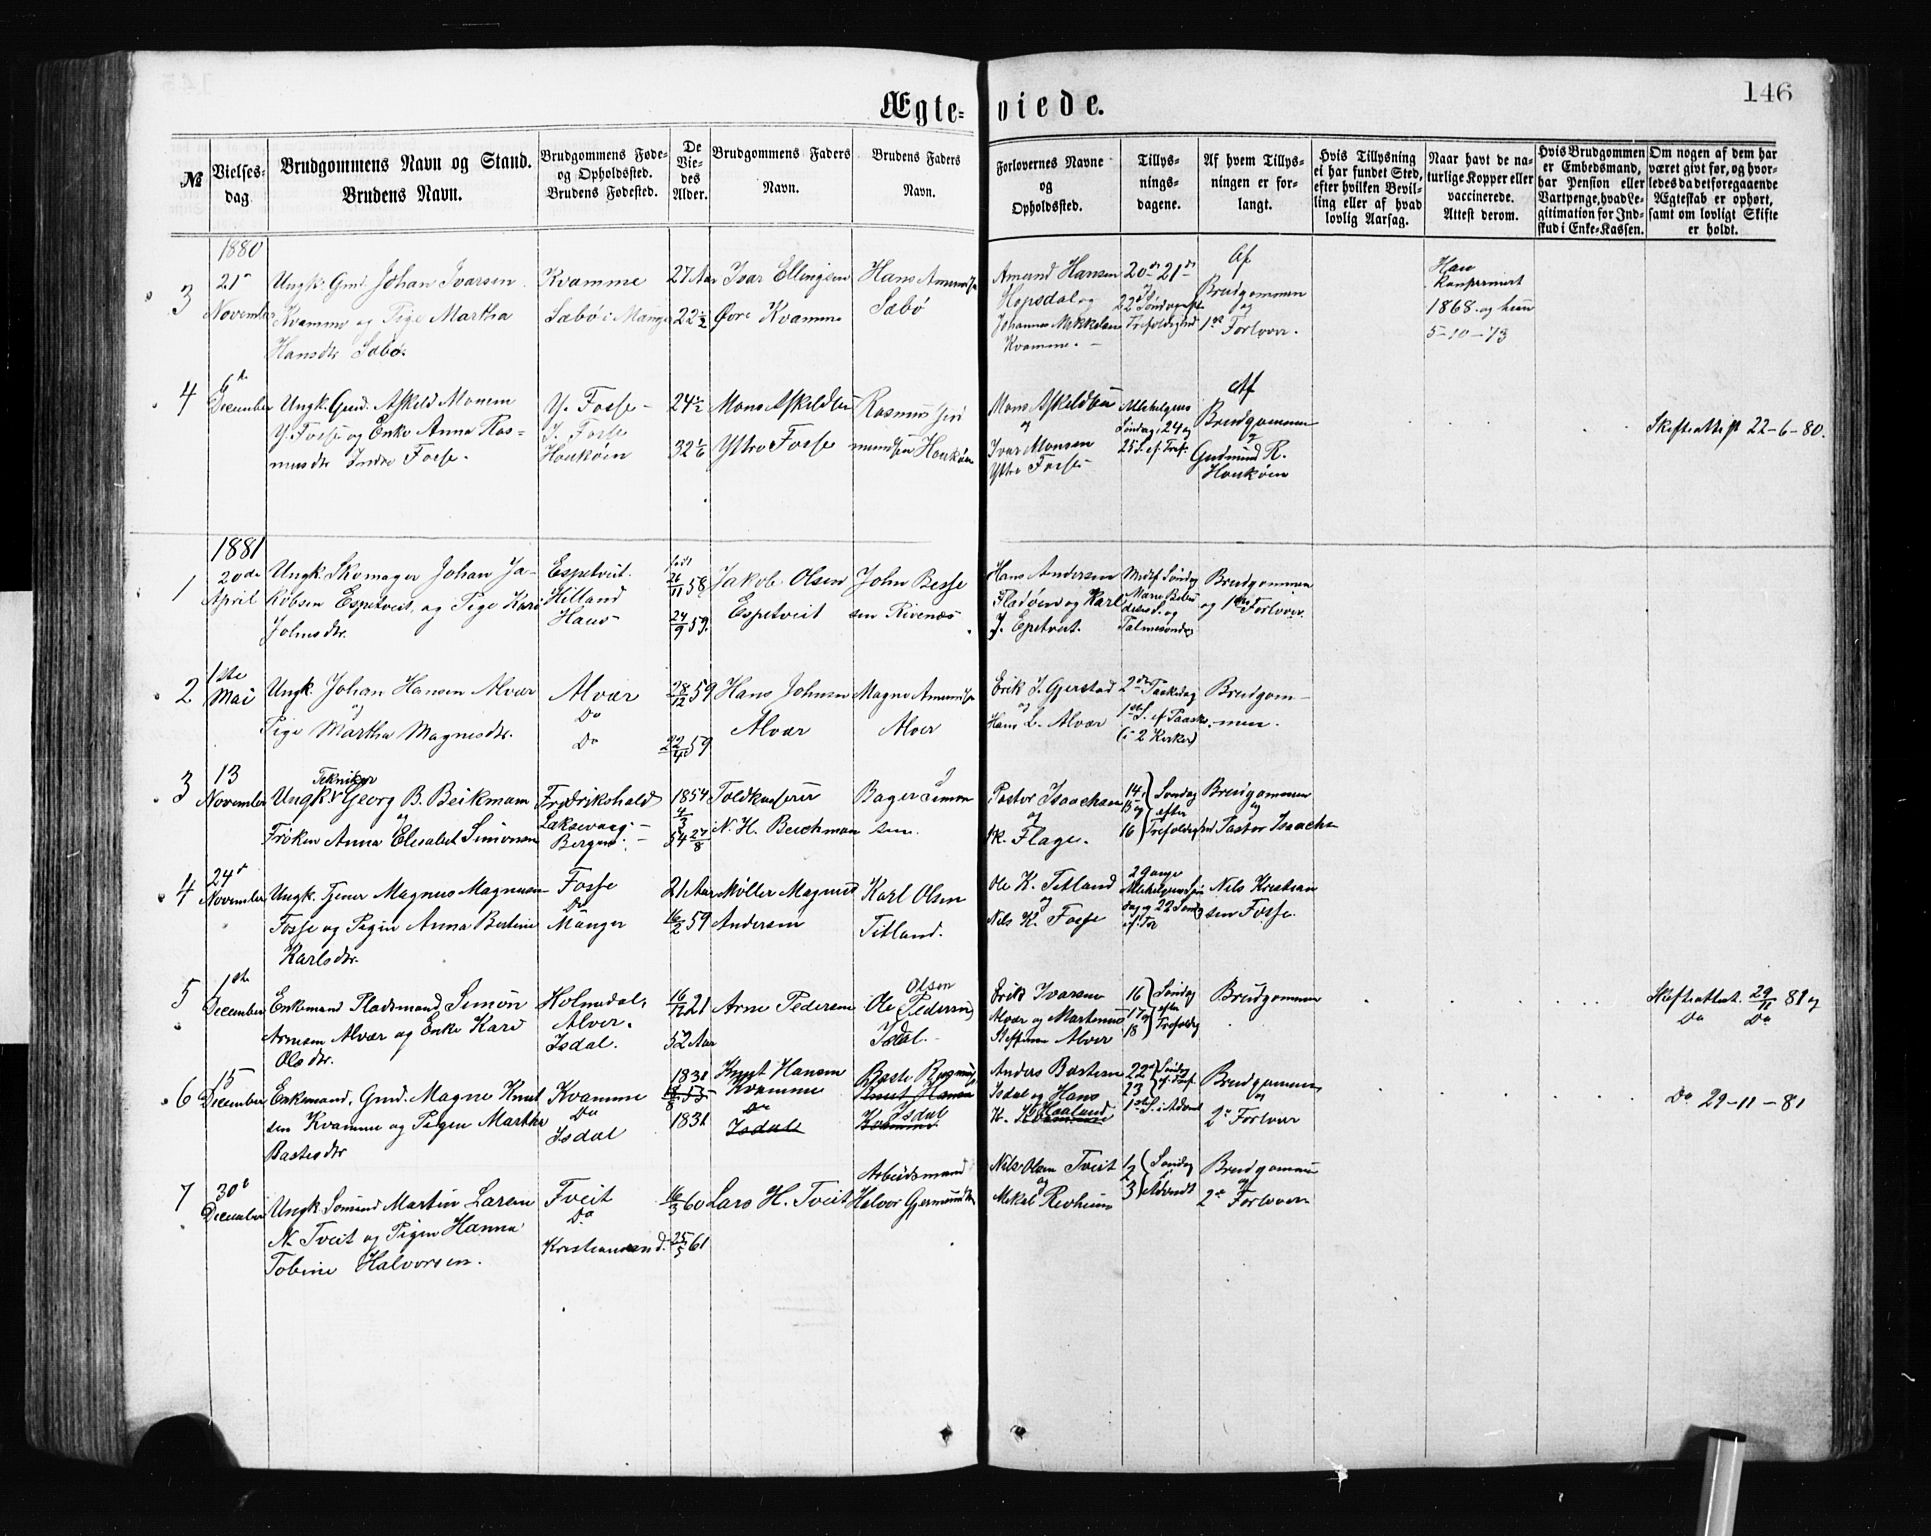 146
Ægteviede.
№
Vielsesdag
Brudgommens Navn og Stand.
Brudens Navn.
Brudgommens Føde-
og Opholdssted.
Brudens Fødested.
De
Vie-
des
Alder.
Brudgommens Faders
Navn.
Brudens Faders
Navn.
Forlovernes Navne
og
Opholdssted.
Tillys-
nings-
dagene.
Af hvem Tillys-
ningen er for-
langt.
Hvis Tillysning
ei har fundet Sted,
efter hvilken Bevil-
ling eller af hvad
lovlig Aarsag.
Naar havt de na-
turlige Kopper eller
vaccinerede.
Attest derom.
Hvis Brudgommen
er Embedsmand,
har Pension eller
Vartpenge, hvad Le-
gitimation for Ind-
skud i Enke-Kassen.
Om nogen af dem har
været givt før, og hvor-
ledes da det foregaaende
Ægteskab er ophørt,
samt om lovligt Skifte
er holdt.
1880
3
21
November
Ungk. Gmd. Johan Ivarsen
Kvamme og Pige Martha
Hansdtr Sæbø.
Kvamme
Sæbø i Manger
27 Aar
22½
Ivar Ellingsen
Øvre Kvamme
Hans
Sæbø
Amund Hansen
Hopsdal og
Johannes Mikkelsen
Kvamme.
20de 21de
22
Trefoldighed
Af
Brudgommen
og
1ste Forlover.
Han
Konfirmert
1868 og hun
5-10-73
4
6te
December
Ungk. Gmd. Askild Monsen
Y. Fosse og Enke Anna Ras-
musdtr Indre Fosse.
Y. Fosse
I. Fosse
Houkøen
24½
32⅙
Mons Askildsen
Ytre Fosse
Rasmus
mundsen Houkøen
Mons Askildsen
og
Ivar Monsen
Ytre Fosse
Allehelgens
Søndag, 24 og
25 S. ef. Tref.
Af
Brudgommen
og
Gudmund R.
Houkøen
Skifteattest 22-6-80.
1881
1
20de
April
Ungk. Skomager Johan Ja-
kobsen Espetveit og Pige Kari
Johnsdtr.
Espetveit
Hilland
Haus
født
26/11 58
24/9 59.
Jakob Olsen
Espetveit
John Besse
sen Rivenæs
Hans Andersen
Fladøen og Karl
J. Epetveit.
Midf. Søndag
Marie Bebu
delses S. og
Palmesøndag
Brudgommen
og 1ste Forlover.
2
1ste
Mai
Ungk. Johan Hansen Alvær
og
Pige Martha Magnesdtr.
Alvær
Do
Do
28/12 59
22/4 59
Hans Johnsen
Alvær
Magne Amundsen
Alver
Erik J. Gjerstad
og
Hans L. Alvær
2den Paaskedag
1ste S. ef. Paaske
(i 2 Kirker)
Brudgom-
men.
3
13
November
Tekniker
Ungk. Georg B. Beikmann
og
Frøken Anna Elisabet Simonsen
Fredrikshald
Laksevaag
Bergen.
1854
4/3
54 27/8
Toldkasserer
N. H. Beichman
Bager Simon
sen.
Pastor Isaachsen
og
Flage.
14
15 og
16
Søndag
efter
Trefoldighed
Brudgommen
og
Pastor Isaachs
4
24
November
Ungk. Tjener Magnus Magnusen
Fosse og Pigen Anna Bertine
Karlsdtr.
Fosse
Do
Manger
21 Aar
16/2 59
Møller Magnus
Andersen
Karl Olsen
Titland.
Ole K. Titland
og
Nils K. Fosse
2 Gange
Allehelgens Søn
dag og 22 Sønd
ef. Tr
Nils Kristian
sen Fosse.
5
1ste
December
Enkemand Pladsmand Simon
Arnesen Alvær og Enke Kari
Olsdtr.
Holmedal,
Alver.
Isdal.
21
52 Aar
Arne Pedersen
Olsen
Ole Pedersen
Isdal.
Erik Ivarsen
Alvær og Martinus
Steffensen Alver
16
17 og
18
Søndag
efter
Trefoldig
Brudgommen
Skifteattest 29/11 81 og
Do Do
6
15
December
Enkemand, Gmd. Magne Knut
sen Kvamme og Pigen Martha
Bastesdtr
Kvamme
Do
Isdal
1831
1831
Knut Hansen
Kvamme
Do
Isdal
Baste Rasmus
Knut Hansen
Isdal
Kvamme
Anders Bastesen
Isdal og Hans
K. Haaland
22
23
Søndag
ef. Tref.
1ste S. i Advent
Brudgommen
og
2 Forlover
Do 29-11-81
7
30
December
Ungk. Sømand Martin Larsen
N. Tveit og Pigen Hanna
Tobine Halvorsen.
Tveit
Do
Kristiansand.
16/3 60
25/5 61
Lars H. Tveit
Arbeidsmand
Halvor Gjermundsen
Nils Olsen Tveit
og
Mikal Revheim
1
2
3
Søndag
i
Advent
Brudgommen
og
2 Forlover